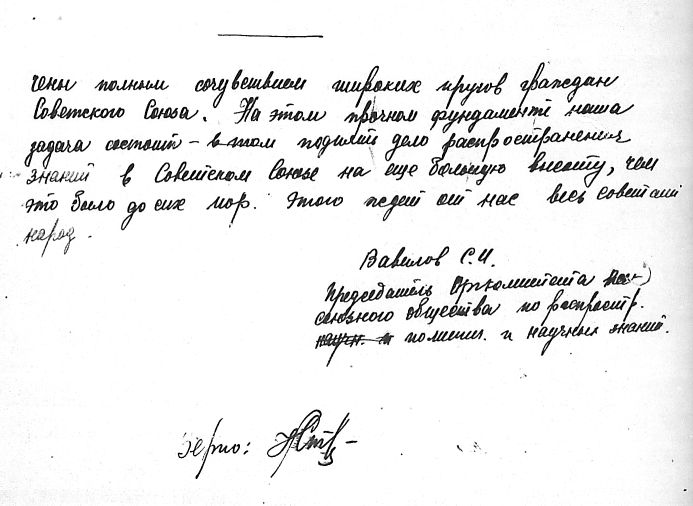 чены полным сочувствием широких кругов граждан
Советского Союза. На этом прочном фундаменте наша
задача состоит – в том поднять дело распространения
знаний в Советском Союзе на еще большую высоту, чем
это было до сих пор. Этого ждет от нас весь советский
народ.
Вавилов С.И.
Председатель Оргкомитета Все-
союзного общества по распростр.
научн. и полит. и научных знаний.
Верно: